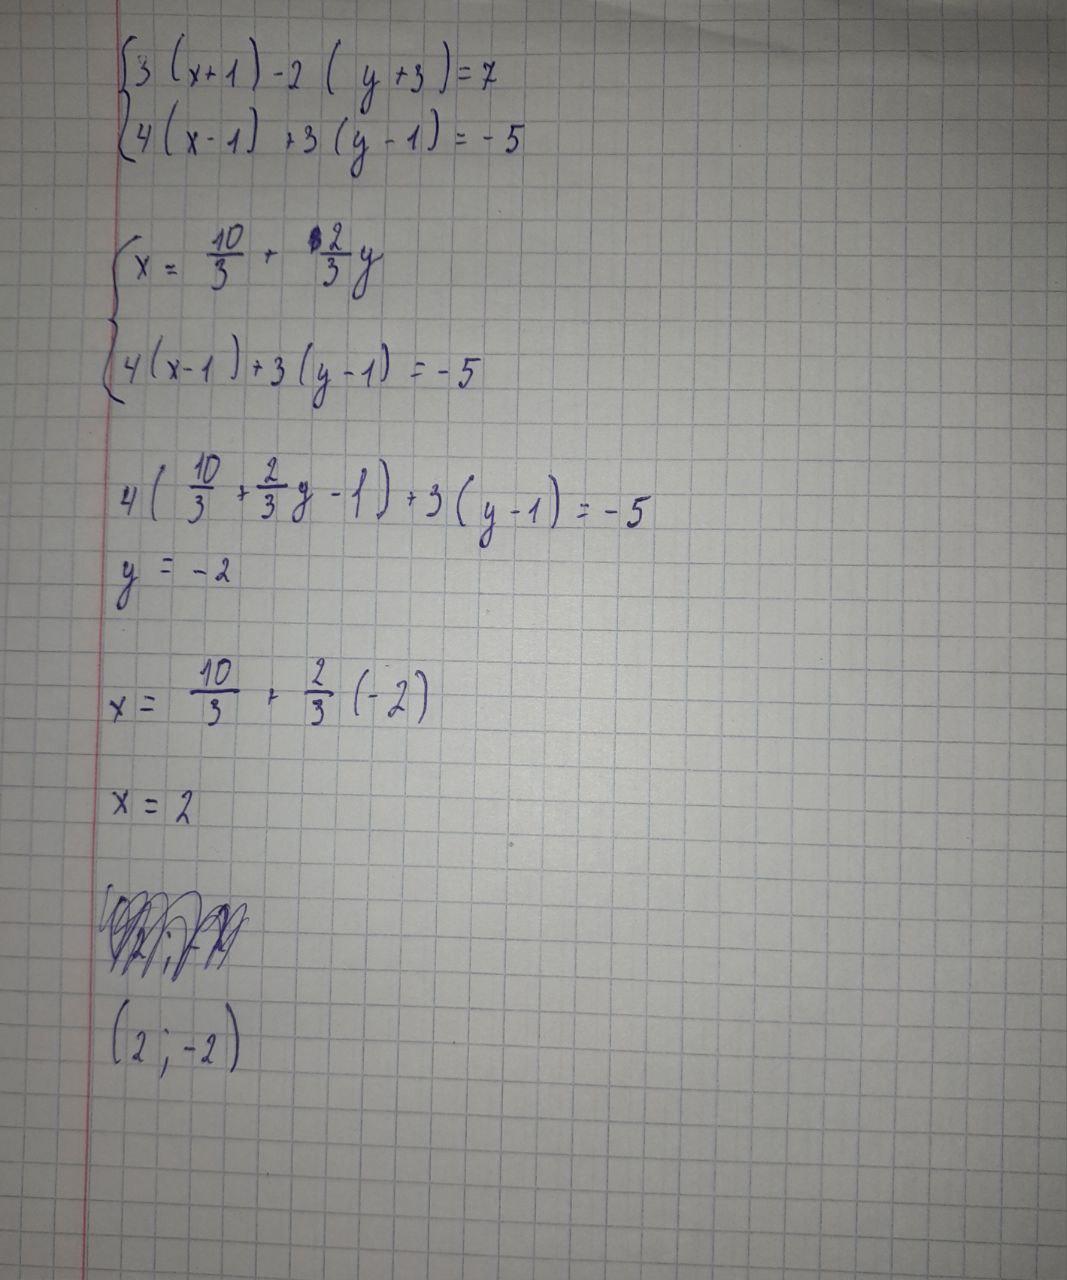 {3(x+1)-2(y+3)=7
4(x-1)+3(y-1)=-5
{x = 10/3 + 2/3 y
4(x-1)+3(y-1)=-5
4(10/3+2/3 y-1)+3(y-1)=-5
y = -2
x = 10/3 + 2/3 (-2)
x = 2
(2;-2)